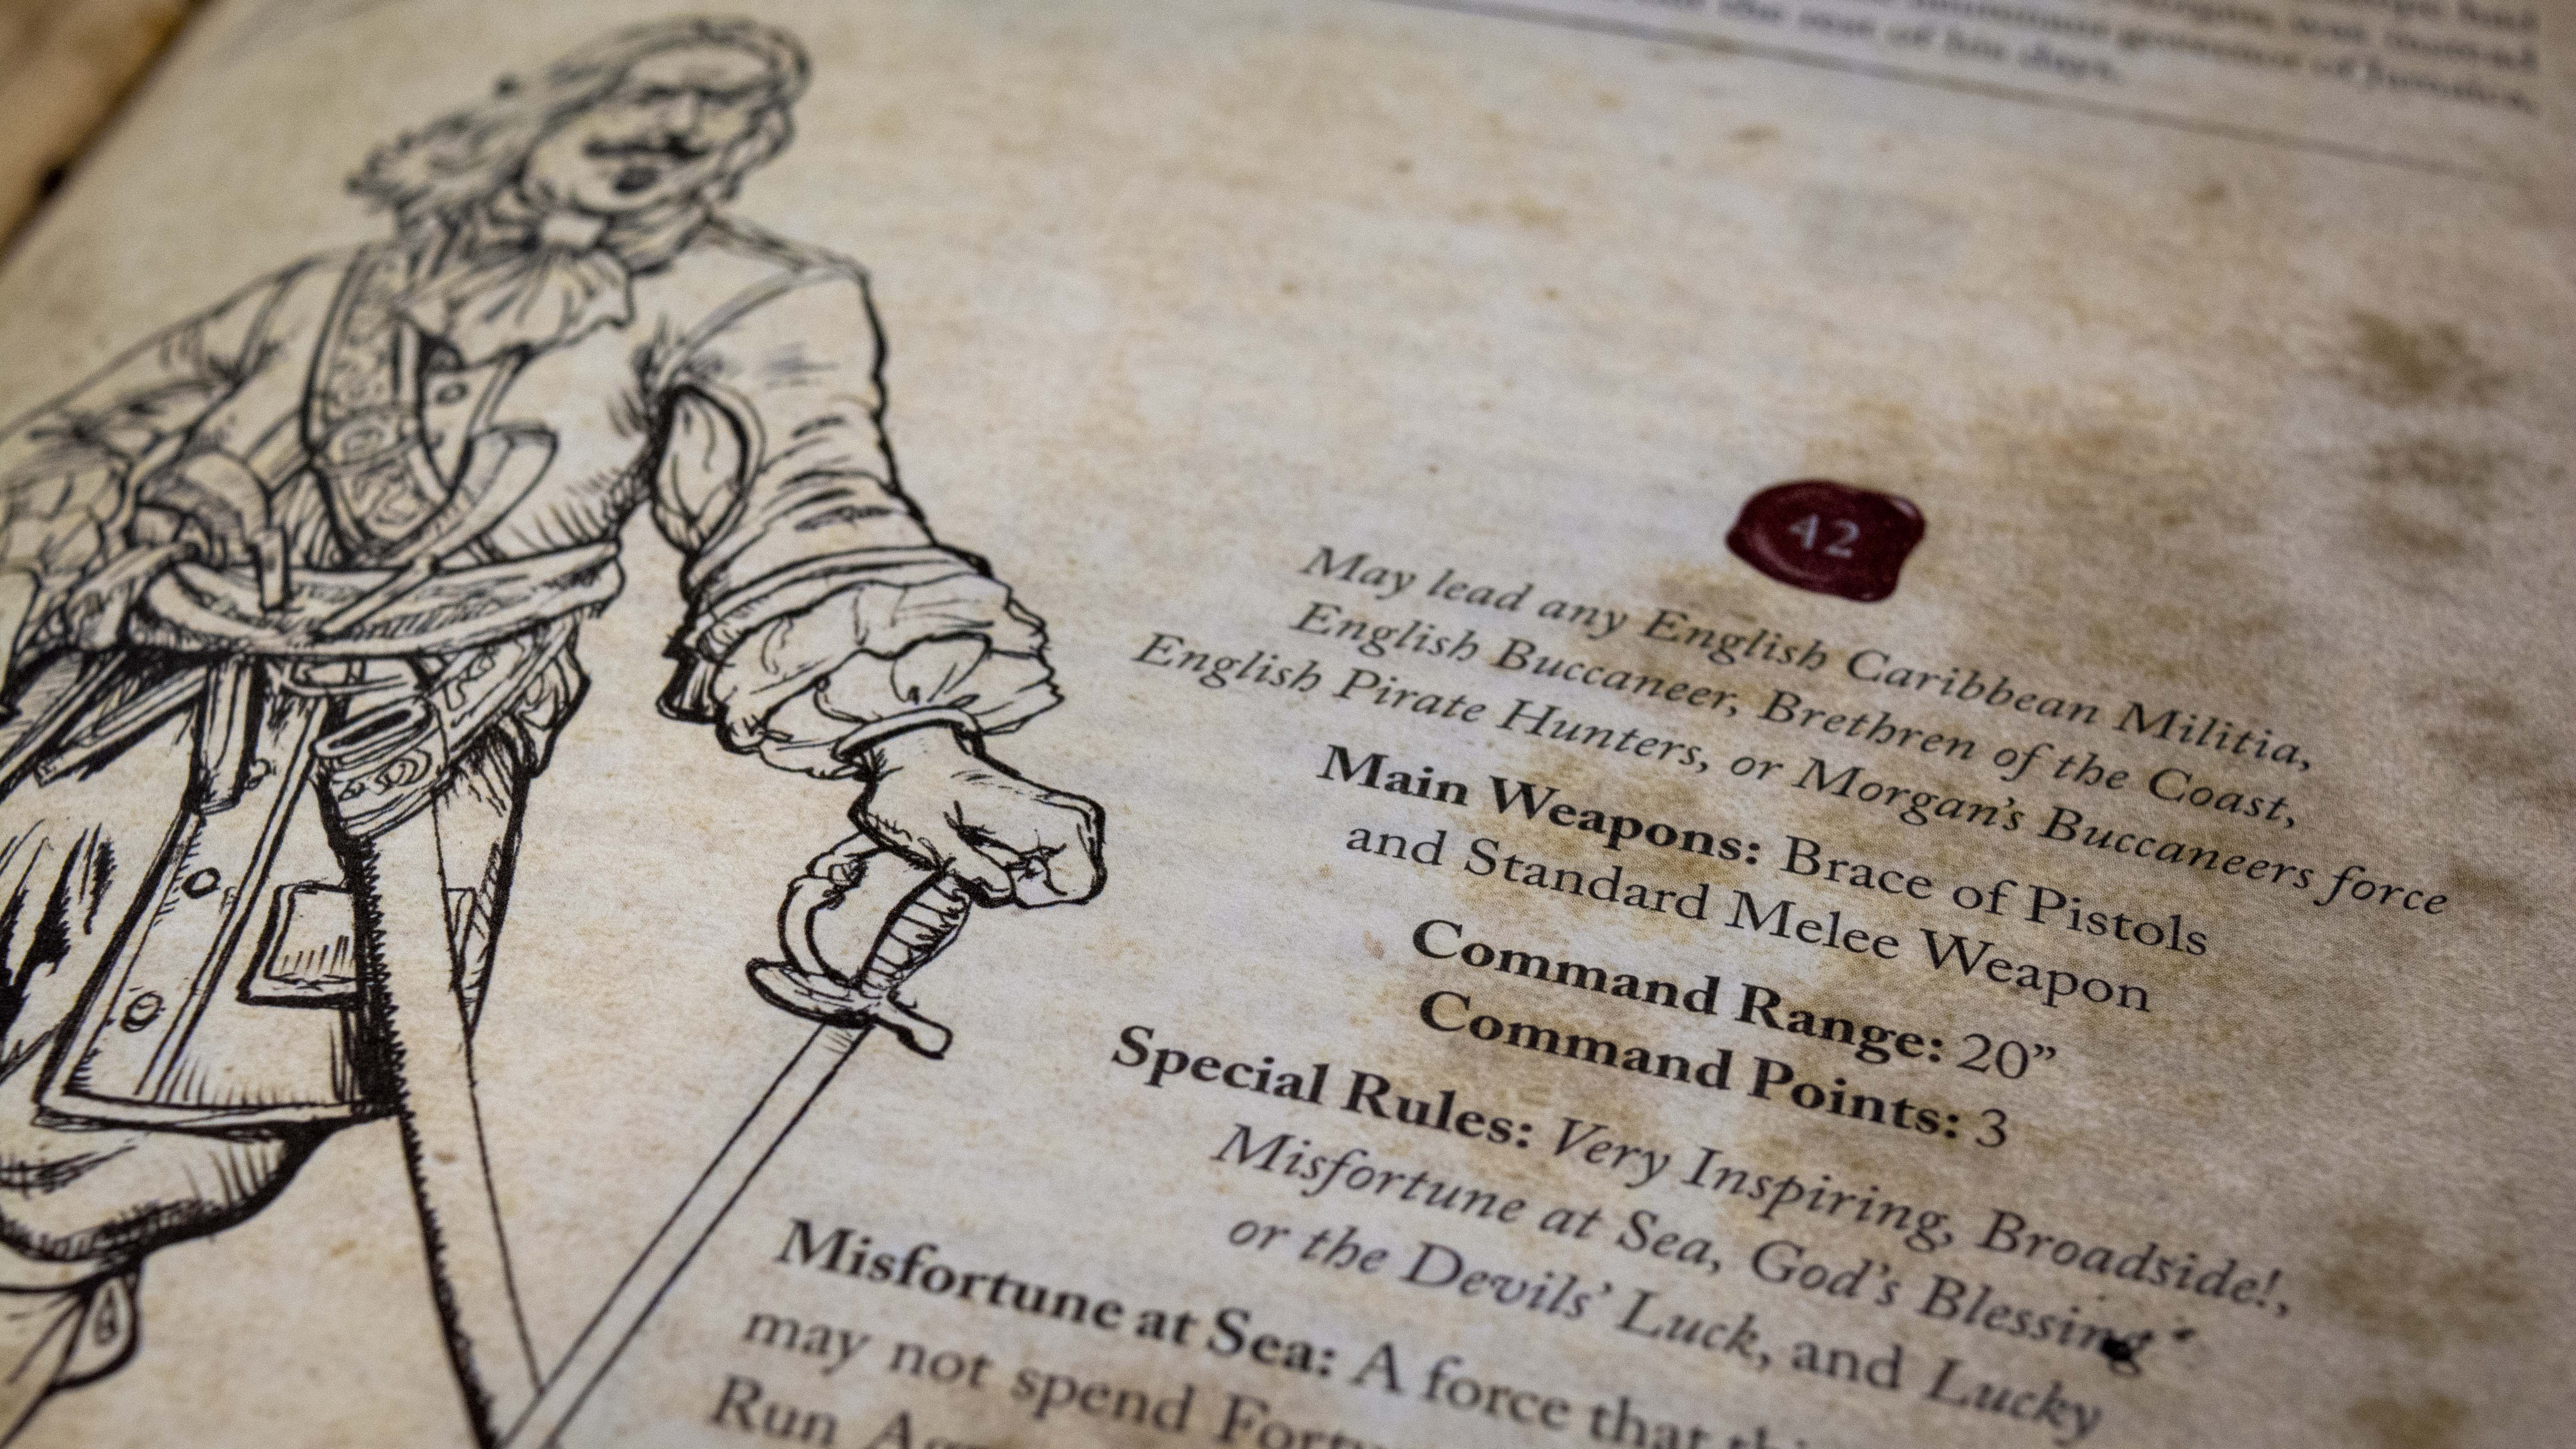 the rest of his days.
governor of Jamaica,
42
May lead any English Caribbean Militia,
English Buccaneer, Brethren of the Coast,
English Pirate Hunters, or Morgan's Buccaneers force
Main Weapons: Brace of Pistols
and Standard Melee Weapon
Command Range: 20”
Command Points: 3
Special Rules: Very Inspiring, Broadside!,
Misfortune at Sea, God's Blessing
or the Devils' Luck, and Lucky
Misfortune at Sea: A force that
may not spend
Run